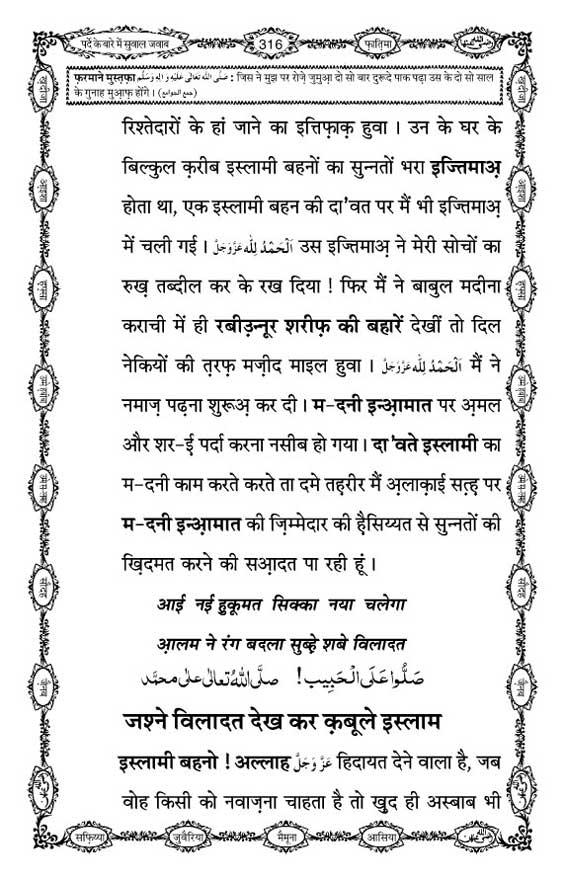 पर्दे के बारे में सुवाल जवाब
316
फ़ातिमा
फ़रमाने मुस्तफ़ा صَلَّى اللّٰهُ تَعَالٰى عَلَيْهِ وَاٰلِهٖ وَسَلَّم : जिस ने मुझ पर रोज़े जुमुआ़ दो सो बार दुरूदे पाक पढ़ा उस के दो सो साल
के गुनाह मुआ़फ़ होंगे । (جمع الجوامع)
रिश्तेदारों के हां जाने का इत्तिफ़ाक़ हुवा । उन के घर के
बिल्कुल क़रीब इस्लामी बहनों का सुन्नतों भरा इज्तिमाअ़
होता था, एक इस्लामी बहन की दा'वत पर मैं भी इज्तिमाअ़
में चली गई । اَلْحَمْدُ لِلّٰه عَزَّوَجَلَّ उस इज्तिमाअ़ ने मेरी सोचों का
रुख़ तब्दील कर के रख दिया ! फिर मैं ने बाबुल मदीना
कराची में ही रबीउ़न्नूर शरीफ़ की बहारें देखीं तो दिल
नेकियों की त़रफ़ मज़ीद माइल हुवा । اَلْحَمْدُ لِلّٰه عَزَّوَجَلَّ मैं ने
नमाज़ पढ़ना शुरूअ़ कर दी । म-दनी इन्आ़मात पर अ़मल
और शर-ई़ पर्दा करना नसीब हो गया । दा'वते इस्लामी का
म-दनी काम करते करते ता दमे तह़रीर मैं अ़लाक़ाई सत़्ह़ पर
म-दनी इन्आ़मात की ज़िम्मेदार की ह़ैसिय्यत से सुन्नतों की
ख़िदमत करने की सआ़दत पा रही हूं ।
आई नई हु़कूमत सिक्का नया चलेगा
आ़लम ने रंग बदला सुब्ह़े शबे विलादत
صَلُّوا عَلَى الْحَبِيب! صَلَّى اللّٰهُ تَعَالٰى عَلٰى مُحَمَّد
जश्ने विलादत देख कर क़बूले इस्लाम
इस्लामी बहनो ! अल्लाह عَزَّوَجَلَّ हिदायत देने वाला है, जब
वोह किसी को नवाज़ना चाहता है तो ख़ुद ही अस्बाब भी
सफ़िय्या
जुवैरिया
मैमूना
आसिया